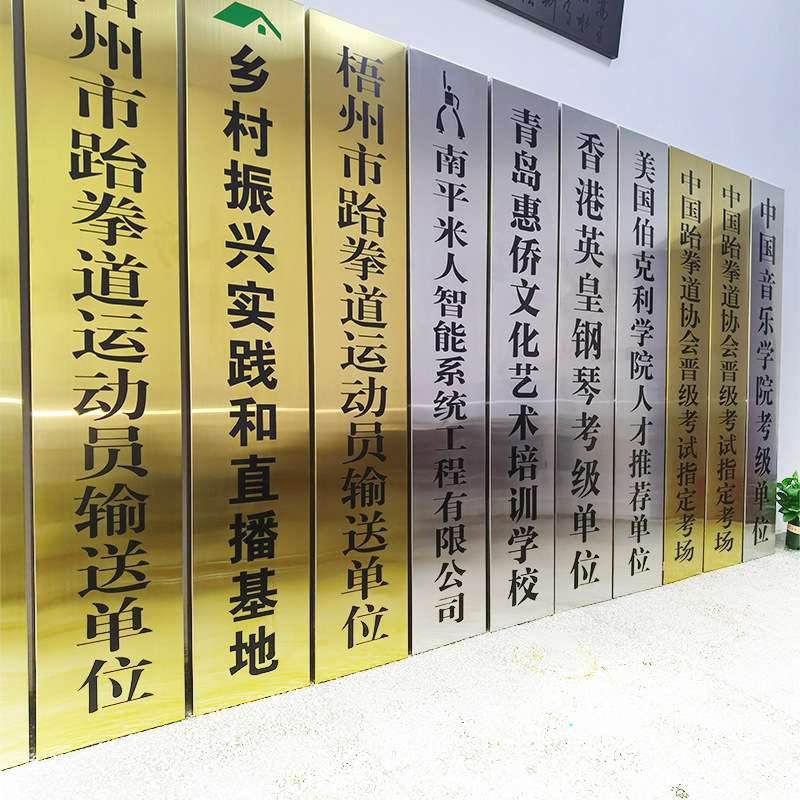 梧州市跆拳道运动员输送单位
乡村振兴实践和直播基地
梧州市跆拳道运动员输送单位
南平米人智能系统工程有限公司
青岛惠侨文化艺术培训学校
香港英皇钢琴考级单位
美国伯克利学院人才推荐单位
中国跆拳道协会晋级考试指定考场
中国跆拳道协会晋级考试指定考场
中国音乐学院考级单位